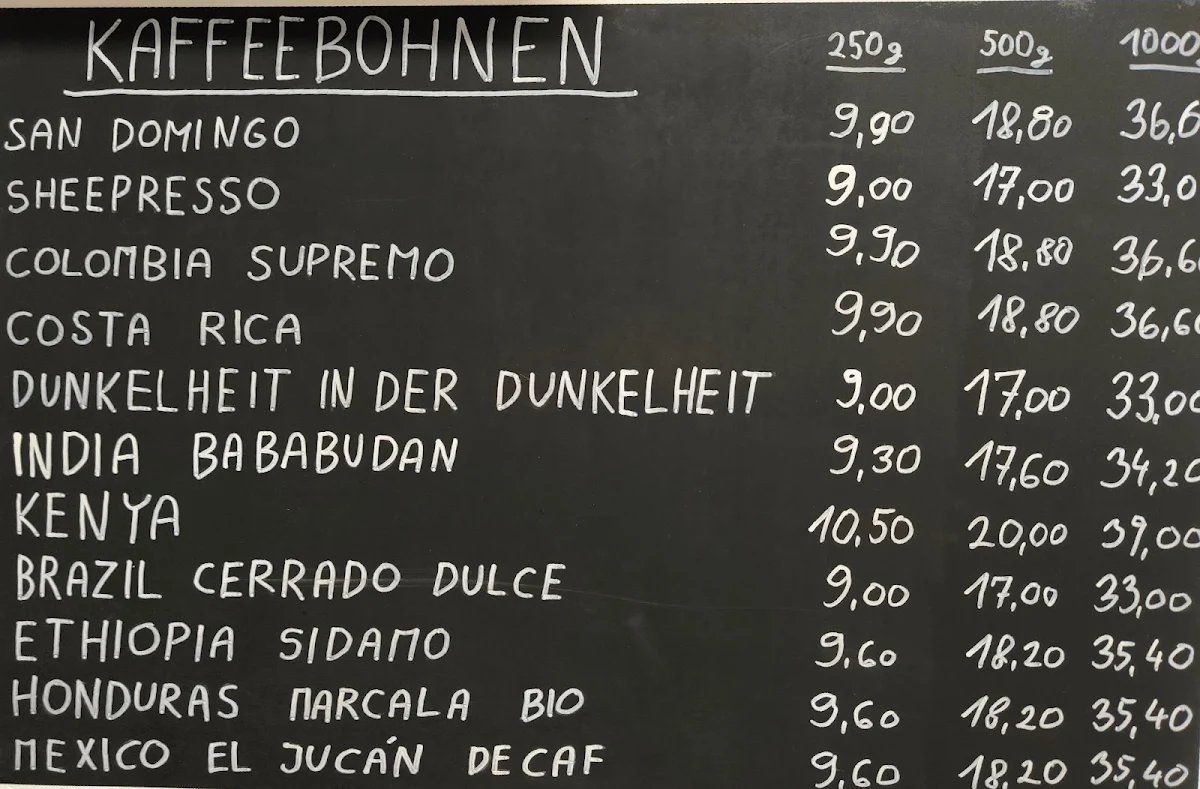 KAFFEEBOHNEN 250g 500g 1000g
SAN DOMINGO 9,90 18,80 36,6
SHEEPRESSO 9,00 17,00 33,0
COLOMBIA SUPREMO 9,90 18,80 36,60
COSTA RICA 9,90 18,80 36,60
DUNKELHEIT IN DER DUNKELHEIT 9,00 17,00 33,00
INDIA BABABUDAN 9,30 17,60 34,20
KENYA 10,50 20,00 39,00
BRAZIL CERRADO DULCE 9,00 17,00 33,00
ETHIOPIA SIDAMO 9,60 18,20 35,40
HONDURAS MARCALA BIO 9,60 18,20 35,40
MEXICO EL JUCÁN DECAF 9,60 18,20 35,40